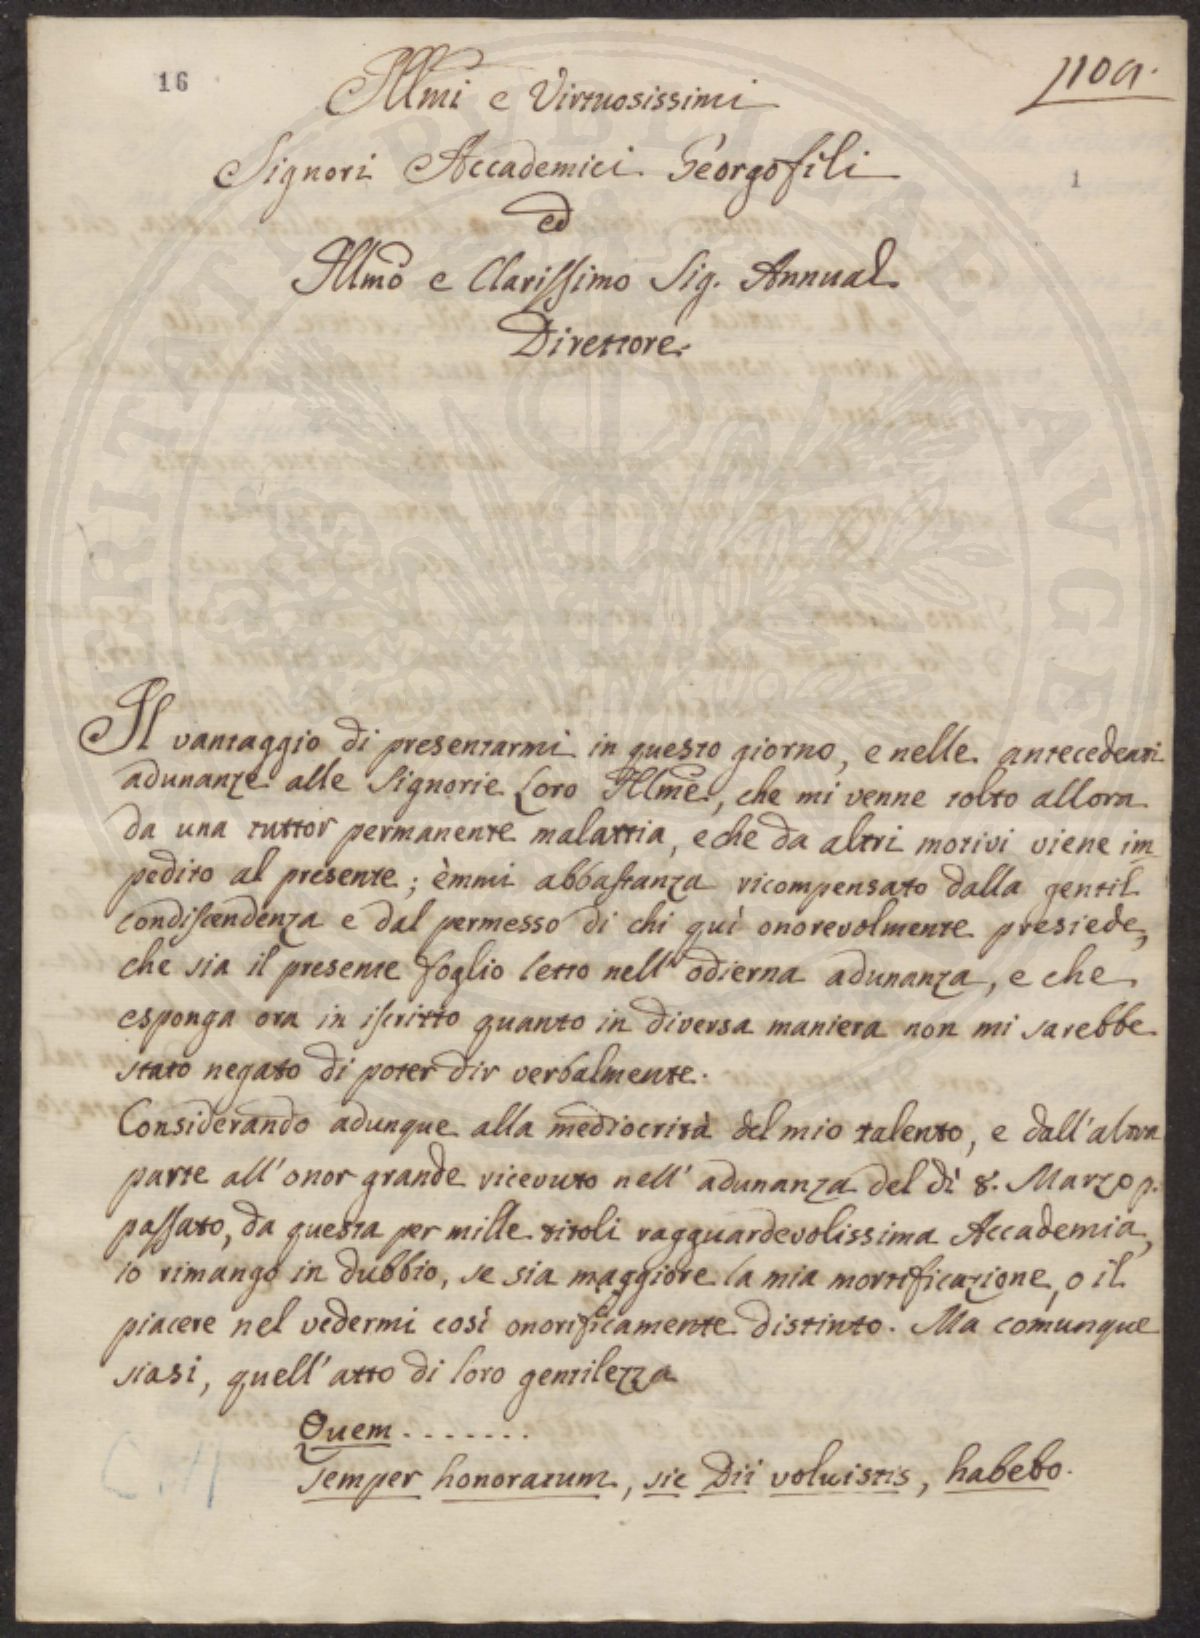 16
110a.
Illmi e Virtuosissimi
Signori Accademici Georgofili
1
ed
Illmo e Clarissimo Sig. Annual
Direttore.
Il vantaggio di presentarmi in questo giorno, e nelle antecedenti
adunanze alle Signorie Loro Illme, che mi venne tolto allora
da una tuttor permanente malattia, e che da altri motivi viene im
pedito al presente; èmmi abbastanza ricompensato dalla gentil
condiscendenza e dal permesso di chi quì onorevolmente presiede,
che sia il presente foglio letto nell'odierna adunanza, e che
esponga ora in iscritto quanto in diversa maniera non mi sarebbe
stato negato di poter dir verbalmente.
Considerando adunque alla mediocrità del mio talento, e dall'altra
parte all'onor grande ricevuto nell'adunanza del dì 8. Marzo p.
passato, da questa per mille titoli ragguardevolissima Accademia,
io rimango in dubbio, se sia maggiore la mia mortificazione, o il
piacere nel vedermi così onorificamente distinto. Ma comunque
siasi, quell'atto di loro gentilezza
Quem . . . . . . .
Semper honoratum, sic Dii voluistis, habebo.